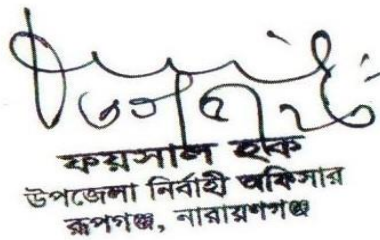 ফয়সাল হক
উপজেলা নির্বাহী অফিসার
রূপগঞ্জ, নারায়ণগঞ্জ